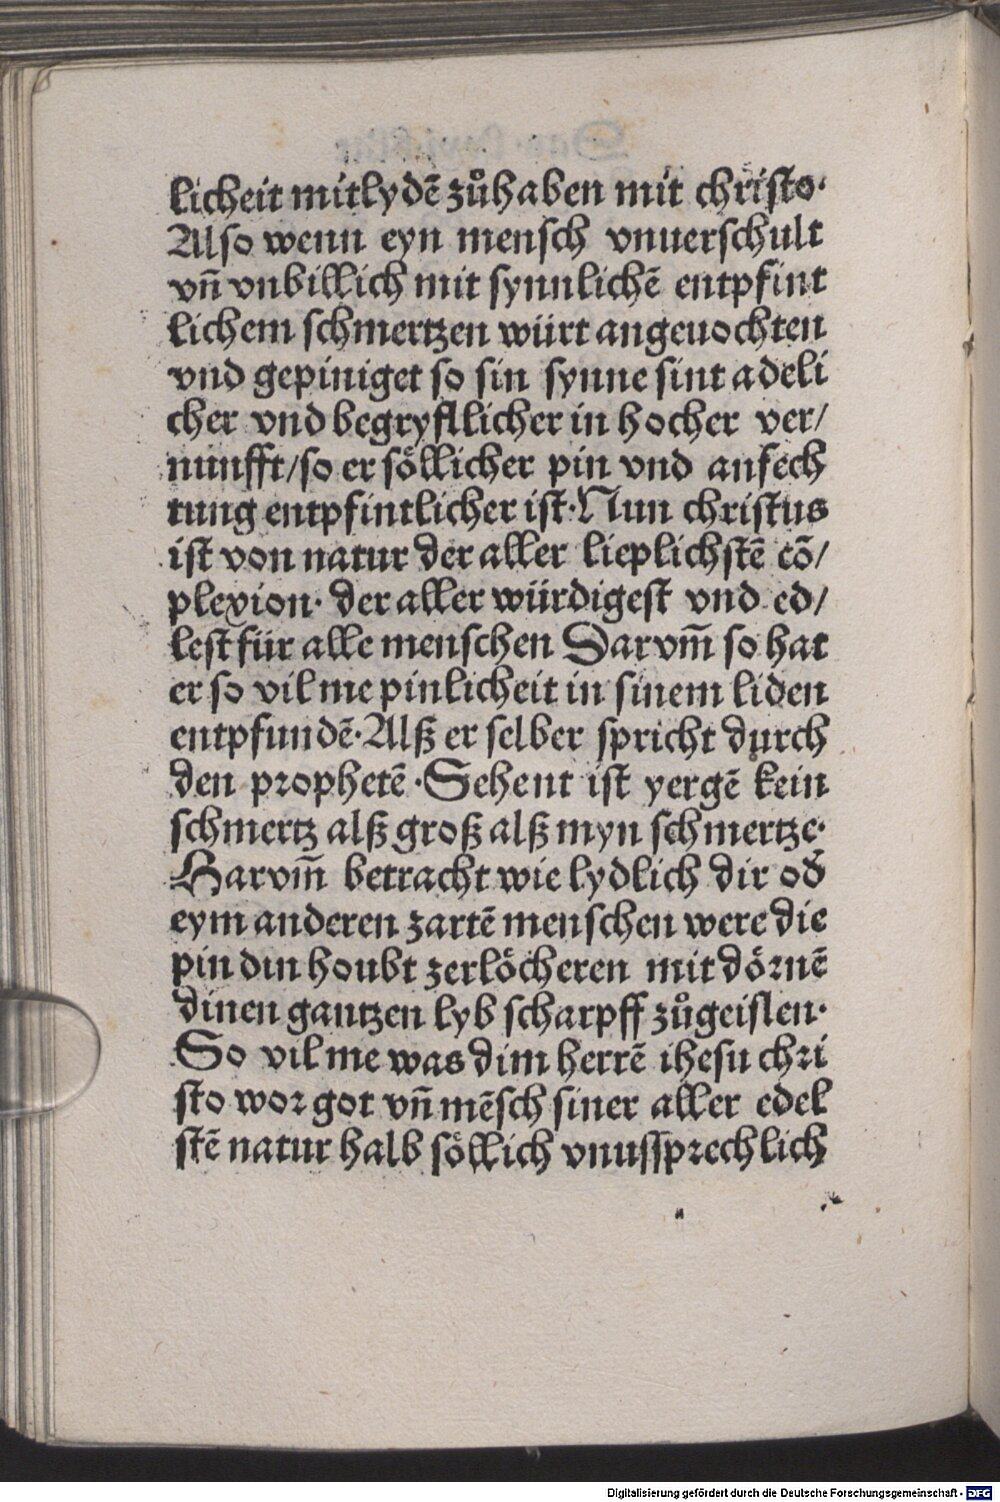 licheit mitlydē zůhaben mit christo·
Also wenn eyn mensch vnuerschult
vn̄ vnbillich mit synnlichē entpfint
lichem schmertzen würt angeuochten
vnd gepiniget so sin synne sint adeli
cher vnd begryfflicher in hocher ver/
nunfft/so er söllicher pin vnd anfech
tung entpfintlicher ist·Nun christus
ist von natur der aller lieplichstē cō/
plexion· der aller würdigest vnd ed/
lest für alle menschen Darvm̄ so hat
er so vil me pinlicheit in sinem liden
entpfundē·Alß er selber spricht durch
den prophetē·Sehent ist yergē kein
schmertz alß groß alß myn schmertze·
Harvm̄ betracht wie lydlich dir od̄
eym anderen zartē menschen were die
pin din houbt zerlöcheren mit dörnē
dinen gantzen lyb scharpff zůgeislen·
So vil me was dim herrē ihesu chri
sto wor got vn̄ mēsch siner aller edel
stē natur halb söllich vnussprechlich
Digitalisierung gefördert durch die Deutsche Forschungsgemeinschaft - DFG